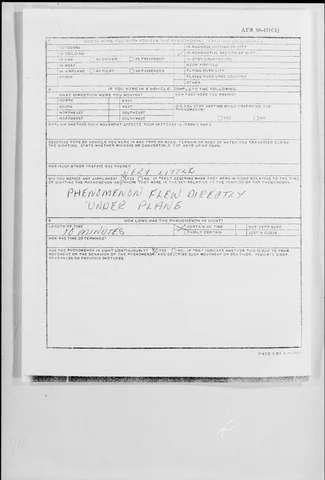 AFR 80-17(C1)
WHERE WERE YOU WHEN YOU SAW THE PHENOMENON?
OUTDOORS
IN BUSINESS SECTION OF CITY
IN BUILDING
IN RESIDENTIAL SECTION OF CITY
IN CAR AS DRIVER AS PASSENGER
IN OPEN COUNTRYSIDE
IN BOAT
NEAR AIRFIELD
IN AIRPLANE AS PILOT AS PASSENGER
FLYING OVER CITY
OTHER
FLYING OVER OPEN COUNTRY
OTHER
IF YOU WERE IN A VEHICLE, COMPLETE THE FOLLOWING
WHAT DIRECTION WERE YOU MOVING?
HOW FAST WERE YOU MOVING?
NORTH EAST
SOUTH WEST
NORTHEAST SOUTHEAST
DID YOU STOP ANYTIME WHILE OBSERVING THE PHENOMENON?
NORTHWEST SOUTHWEST
YES NO
DESCRIBE TYPE OF VEHICLE YOU WERE IN AND TYPE OF ROAD, TERRAIN OR BODY OF WATER YOU TRAVERSED DURING
THE SIGHTING. STATE WHETHER WINDOWS OR CONVERTIBLE TOP WERE UP OR DOWN.
HOW MUCH OTHER TRAFFIC WAS THERE?
VERY LITTLE
DID YOU NOTICE ANY AIRPLANES? YES NO. IF YES, DESCRIBE WHEN THEY WERE IN SIGHT RELATIVE TO THE TIME
OF SIGHTING THE PHENOMENON AND WHERE THEY WERE IN THE SKY RELATIVE TO THE POSITION OF THE PHENOMENON.
PHENOMENON FLEW DIRECTLY
UNDER PLANE
HOW LONG WAS THE PHENOMENON IN SIGHT?
LENGTH OF TIME
CERTAIN OF TIME NOT VERY SURE
10 MINUTES
FAIRLY CERTAIN JUST A GUESS
HOW WAS TIME DETERMINED?
WAS THE PHENOMENON IN SIGHT CONTINUOUSLY? YES NO. IF NO, INDICATE WHETHER THIS IS DUE TO YOUR
MOVEMENT OR THE BEHAVIOR OF THE PHENOMENON, AND DESCRIBE SUCH MOVEMENT OR BEHAVIOR.